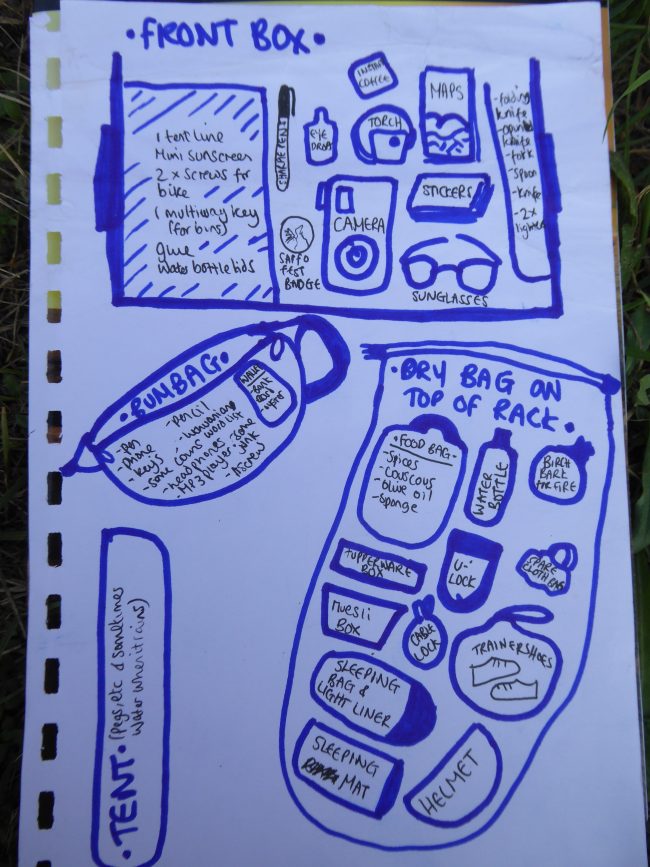 • FRONT BOX •
1 tent line
Mini sunscreen
2 x screws for
bike
1 multiway key
(for bins)
glue
water bottle lids
SHARPENER
EYE
DROPS
INSTANT
COFFEE
TORCH
MAPS
STICKERS
CAMERA
FEST
BADGE
SUNGLASSES
- folding
knife
knife
- fork
- spoon
- knife
- 2x
lighter
• BUMBAG •
- Pen
- Phone
- keys
- pencil
- some coins
word list
- headphones
- MP3 player
- some
junk
- bank
card
• DRY BAG ON
TOP OF RACK •
• FOOD BAG •
- spices
- couscous
- olive oil
- sponge
WATER
BOTTLE
BIRCH
BARK
for FIRE
TUPPERWARE
BOX
U-
LOCK
SPARE
CLOTH BAG
MUESLI
BOX
CABLE
LOCK
TRAINERSHOES
SLEEPING
BAG &
LIGHT LINER
SLEEPING
MAT
HELMET
• TENT • (pegs, etc & sometimes
water when it rains)